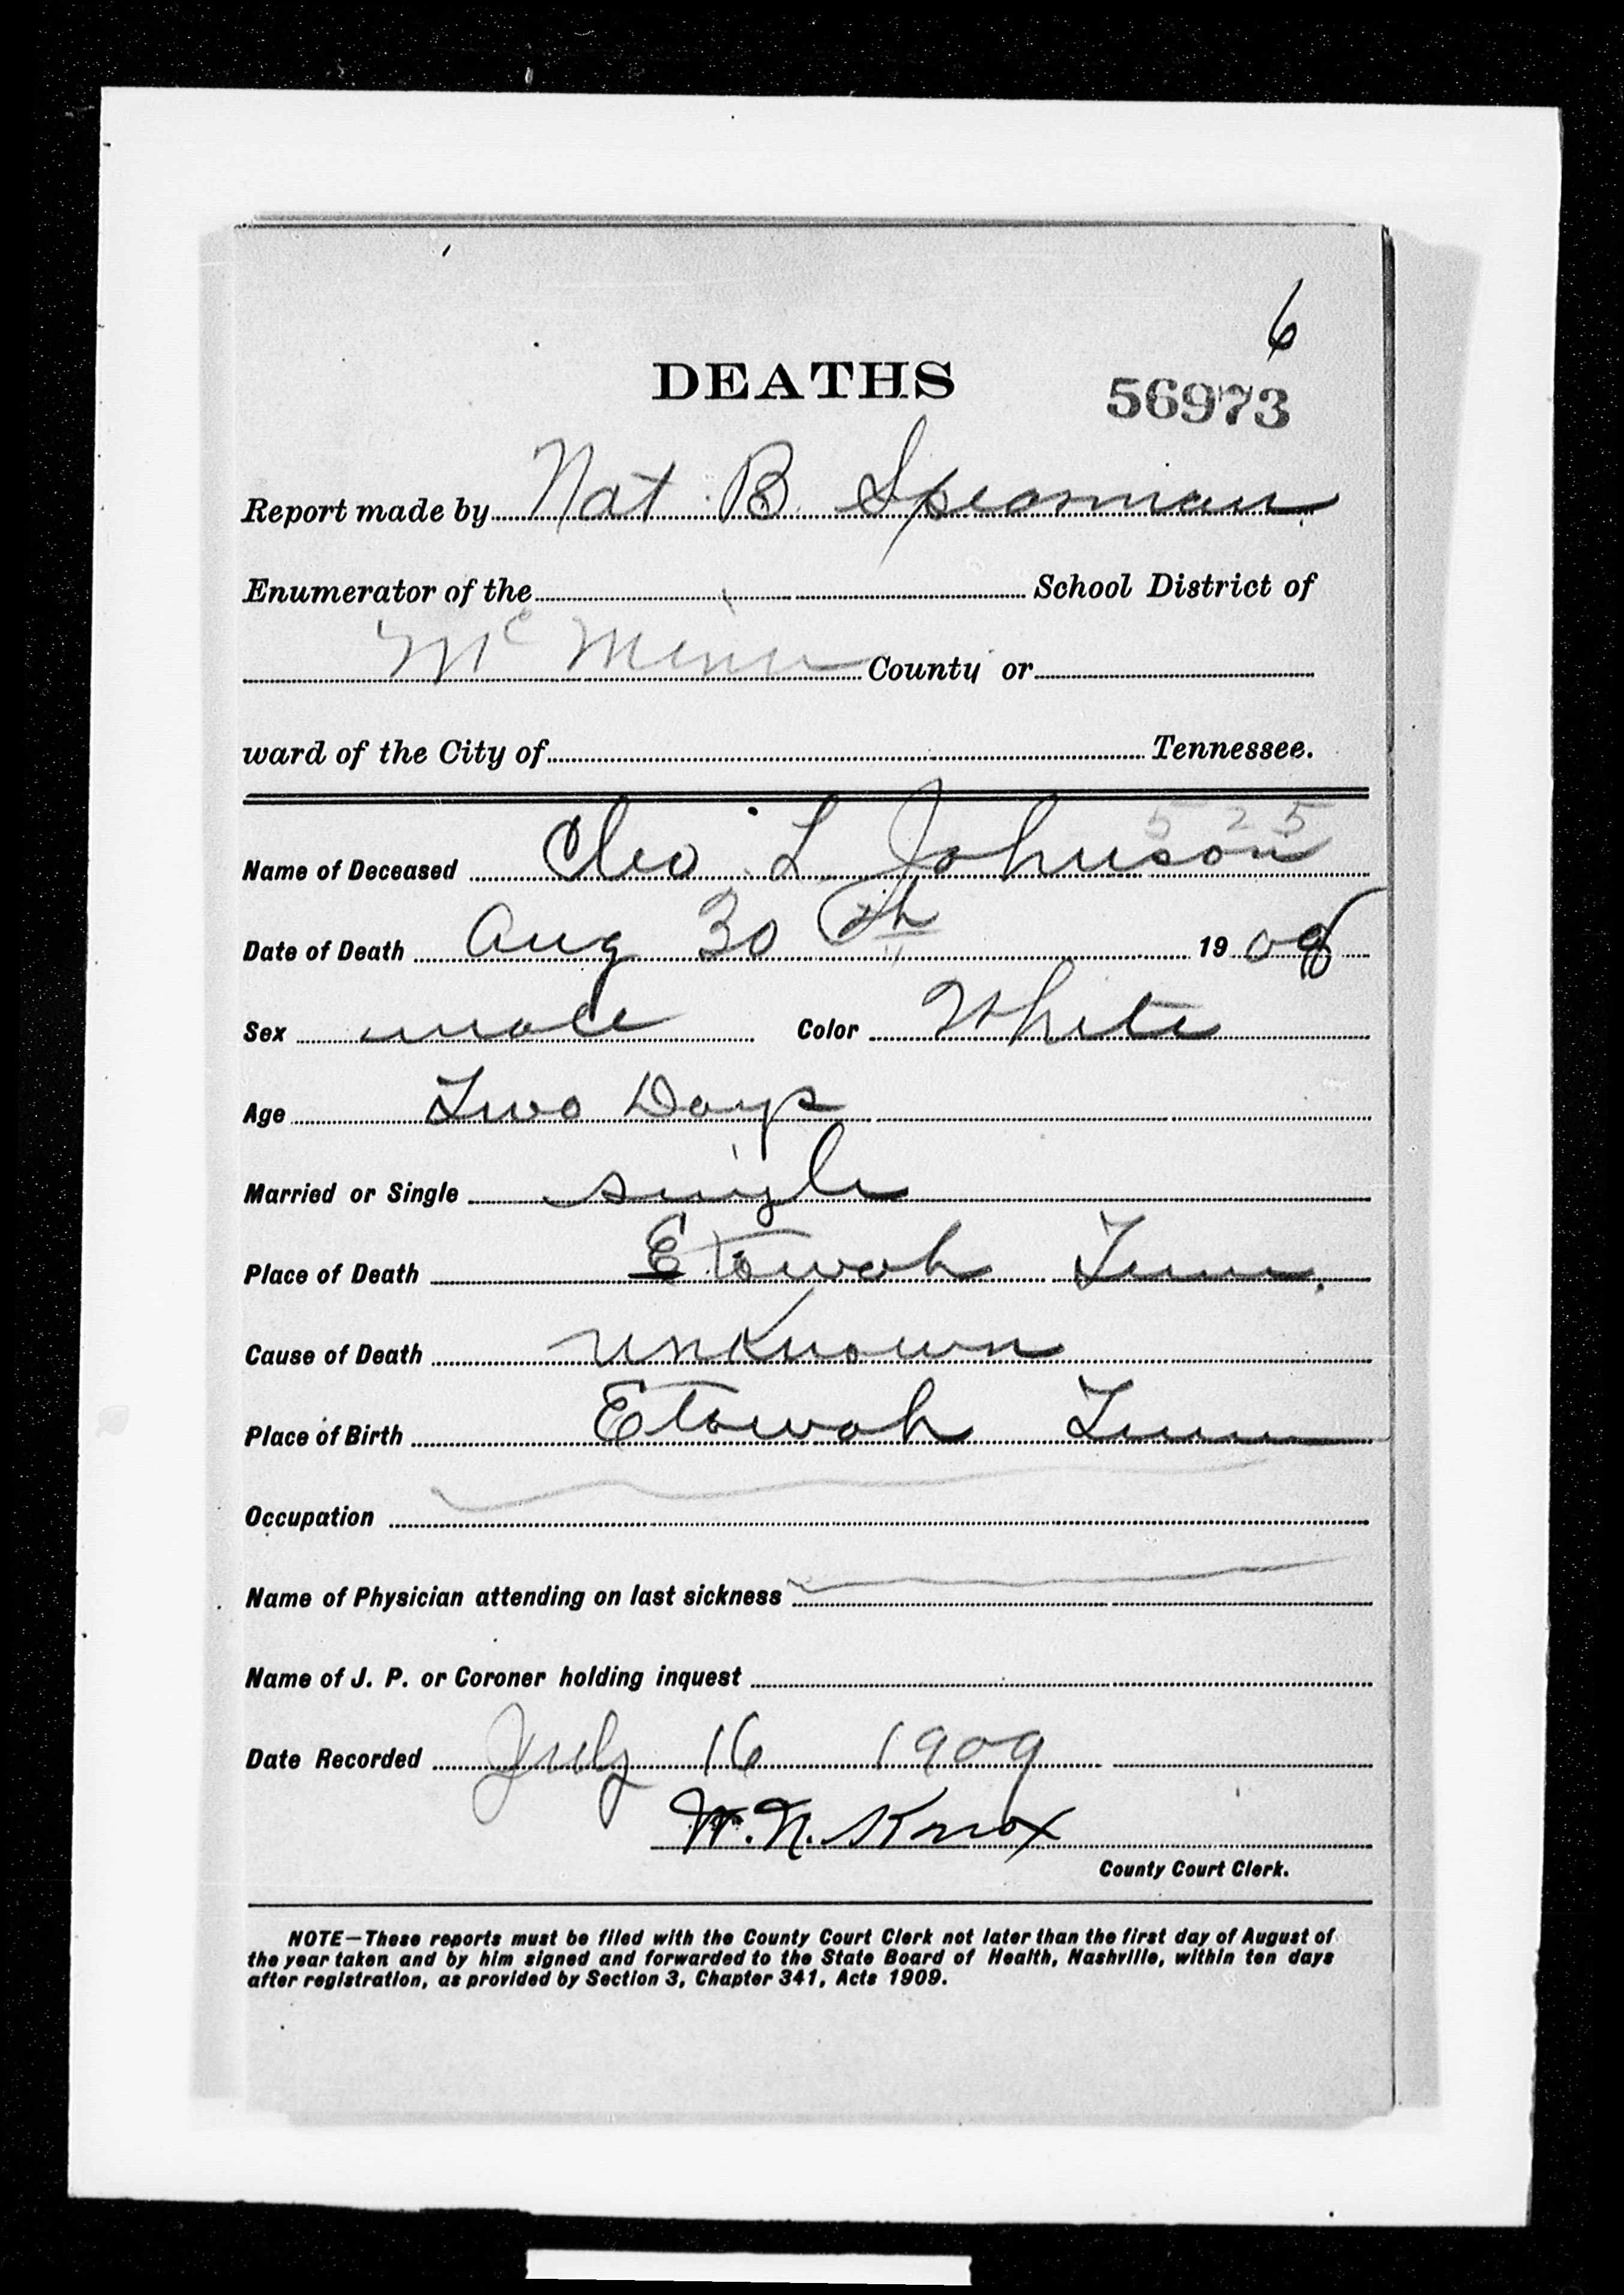 6
DEATHS 56973
Report made by Nat B. Spearman
Enumerator of the School District of
Mc Minn County or
ward of the City of Tennessee.
525
Name of Deceased Cleo L Johnson
Date of Death Aug 30th 1908
Sex male Color White
Age Two Days
Married or Single single
Place of Death Etowah Tenn.
Cause of Death unknown
Place of Birth Etowah Tenn
Occupation
Name of Physician attending on last sickness
Name of J. P. or Coroner holding inquest
Date Recorded July 16 1909
W. N. Knox
County Court Clerk.
NOTE—These reports must be filed with the County Court Clerk not later than the first day of August of
the year taken and by him signed and forwarded to the State Board of Health, Nashville, within ten days
after registration, as provided by Section 3, Chapter 341, Acts 1909.